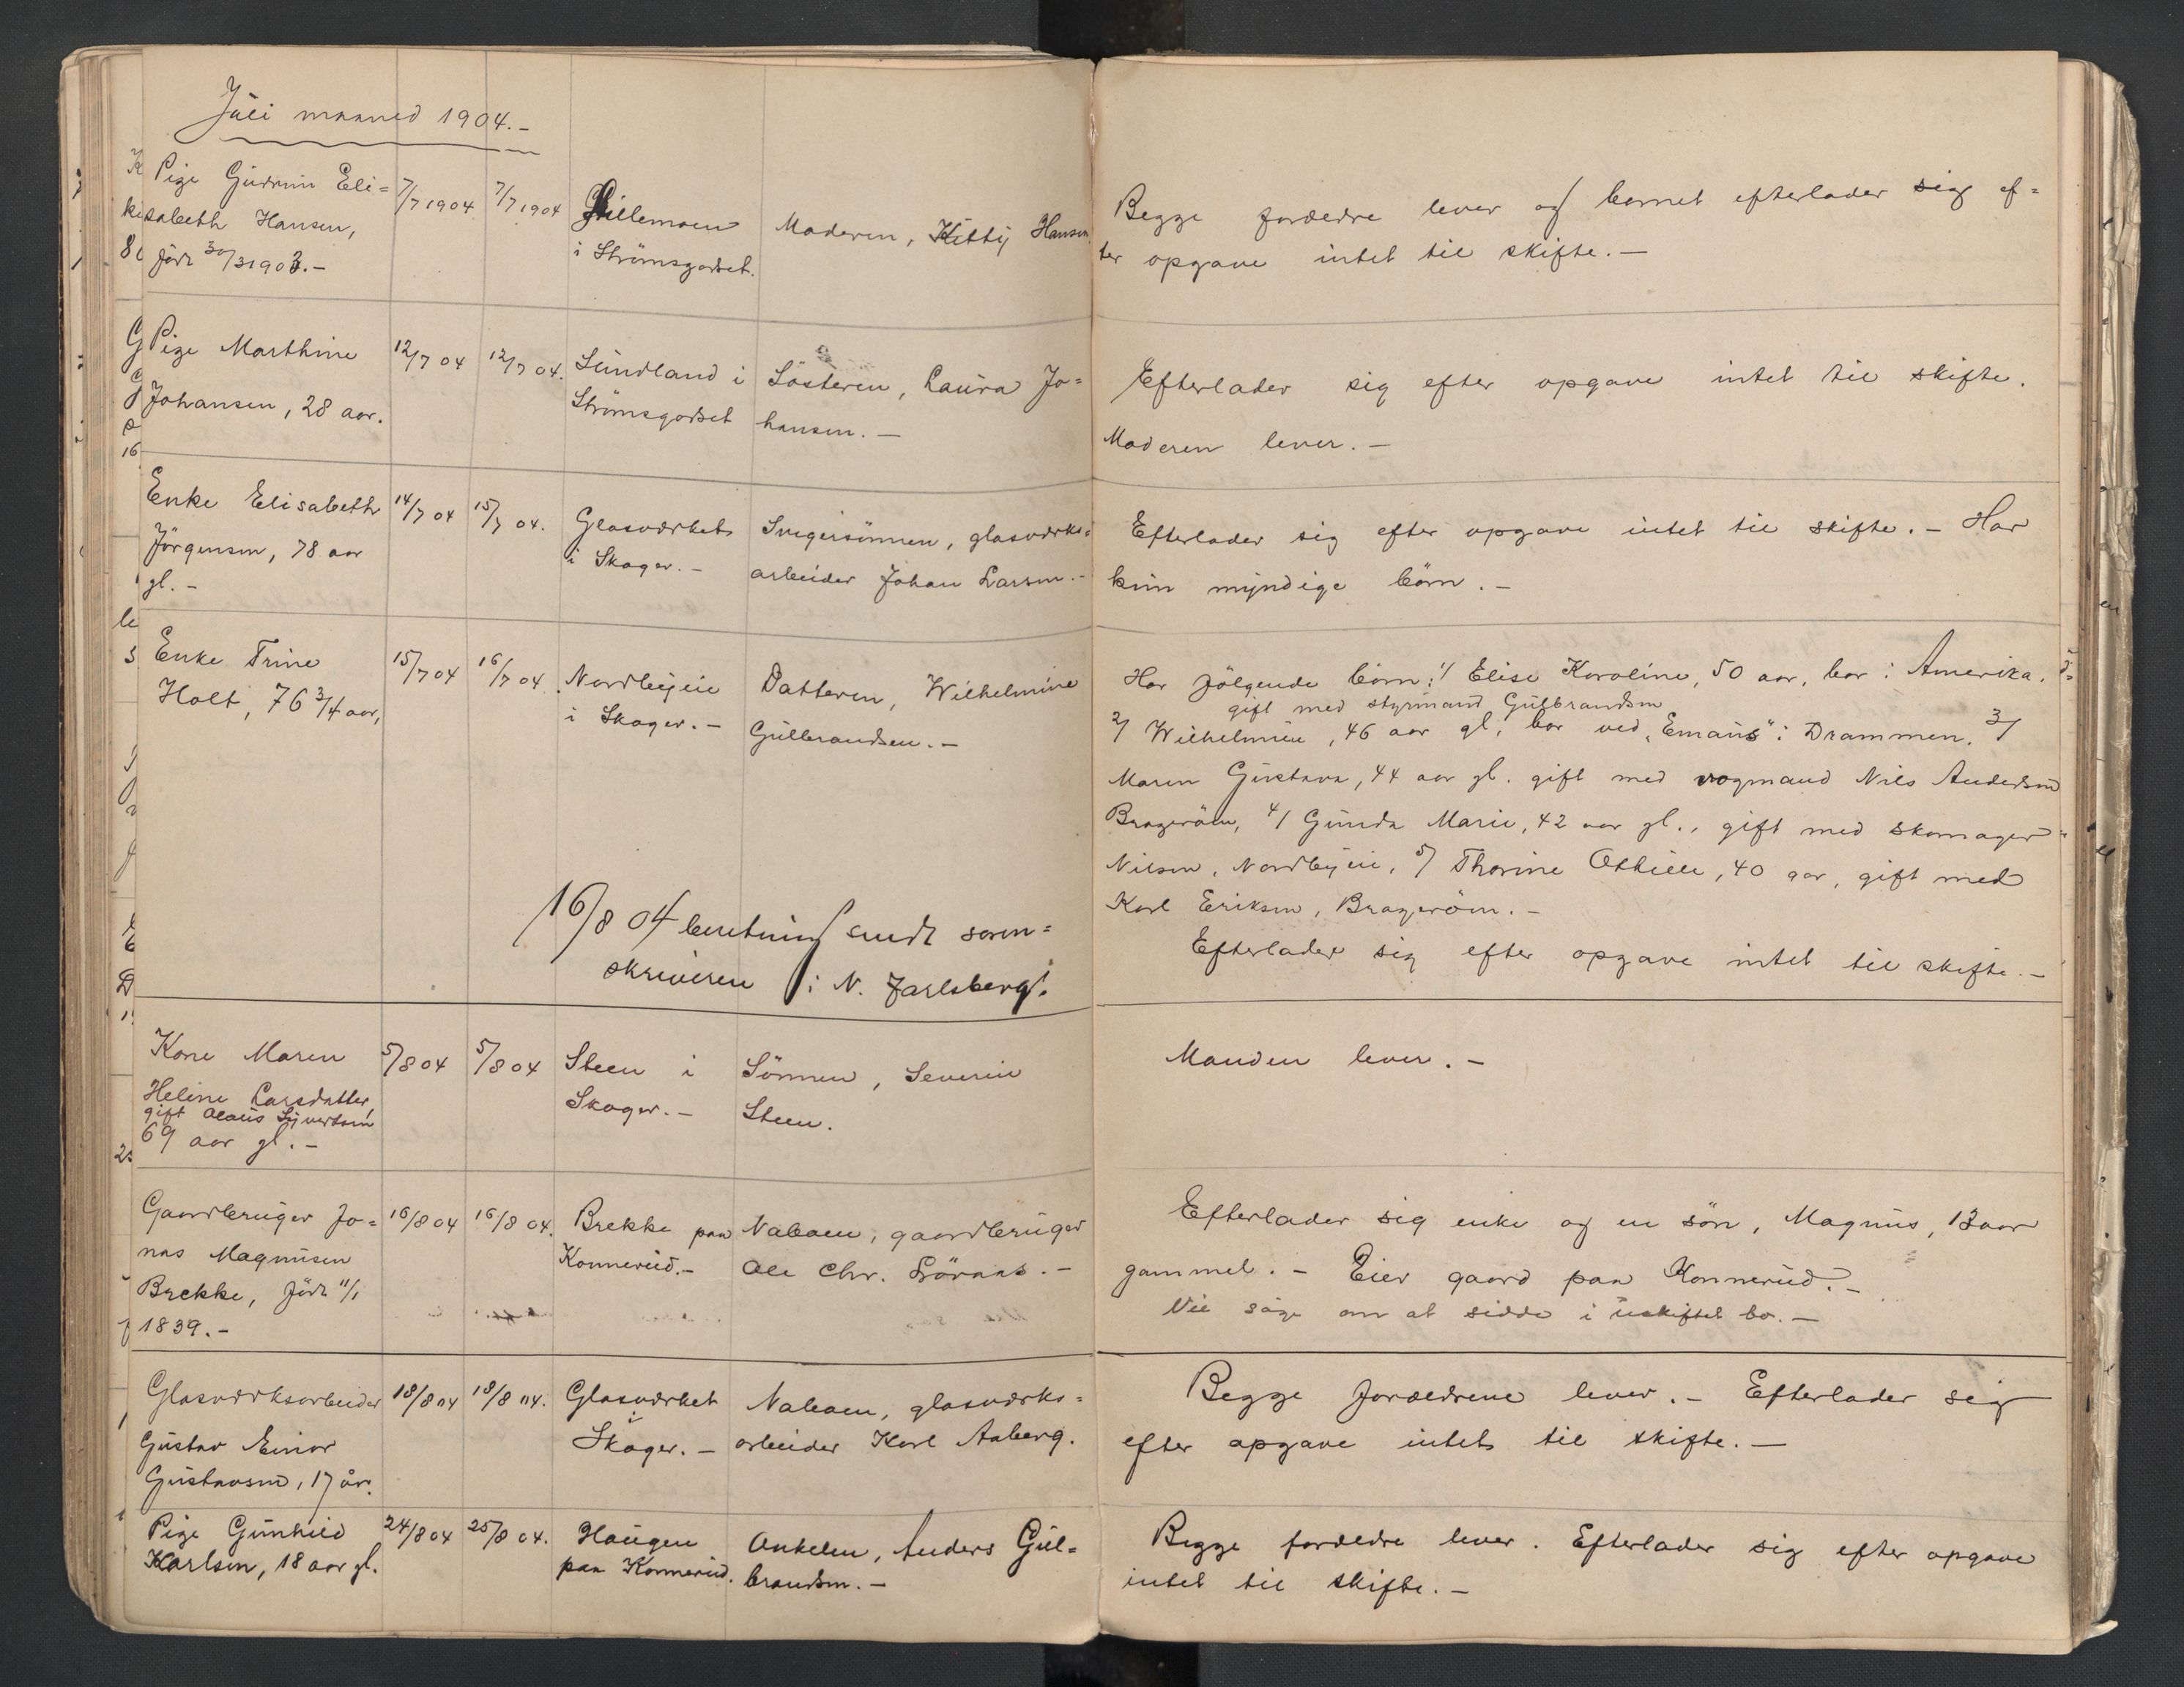 Juli maaned 1904.-
Pige Gudrun Eli=
sabeth Hansen,
född 30/3 1903.-
7/7 1904
7/7 1904
i Strömsgodset.
Moderen, Kitty Hansen
Begge forældre lever og barnet efterlader sig ef=
ter opgave intet til skifte.-
Pige Marthine
Johansen, 28 aar.
12/7 04
12/7 04.
Sundland i
Strömsgodset
Sösteren, Laura Jo=
hansen.-
Efterlader sig efter opgave intet til skifte.
Moderen lever.-
Enke Elisabeth
Jörgensen, 78 aar
gl.-
14/7 04
15/7 04.
Glasværket
i Skoger.-
Svigersönnen, glasværks=
arbeider Johan Larsen.-
Efterlader sig efter opgave intet til skifte.- Har
kun myndige börn.-
Enke Trine
Holt, 76 3/4 aar,
15/7 04
16/7 04.
Nordbyeie
i Skoger.-
Datteren, Wilhelmine
Gulbrandsen.-
Har fölgende börn: 1/ Elise Karoline, 50 aar, bor i Amerika.
gift med styrmand Gulbrandsen
2/ Wilhelmine, 46 aar gl, bor ved "Emaus" i Drammen. 3/
Maren Gustava, 44 aar gl. gift med vognmand Nils Andersen
Brageröen, 4/ Gunda Marie, 42 aar gl., gift med skomager
Nilsen, Nordbyeie, 5/ Thorine Othilie, 40 aar, gift med
Karl Eriksen, Brageröen.-
Efterlader sig efter opgave intet til skifte.-
16/8 04 beretning sendt soren=
skriveren i N. Jarlsberg.
Kone Maren
Heline Larsdatter,
gift Olaus Syvertsen
69 aar gl.-
5/8 04
5/8 04
Steen i
Skoger.-
Sönnen, Severin
Steen.
Manden lever.-
Gaardbruger Jo=
nas Magnusen
Brekke, född 11/1
1839.-
16/8 04
16/8 04.
Brekke paa
Konnerud.-
Naboen, gaardbruger
Ole Chr. Löraas.-
Efterlader sig enke og en sön, Magnus, 13 aar
gammel.- Eier gaard paa Konnerud.-
Vil söge om at sidde i uskiftet bo.-
Glasværksarbeider
Gustav Einar
Gustavsen, 17 år.
18/8 04
18/8 04.
Glasværket
i
Skoger.-
Naboen, glasværks=
arbeider Karl Aaberg.
Begge forældrene lever.- Efterlader sig
efter opgave intet til skifte.-
Pige Gunhild
Karlsen, 18 aar gl.
24/8 04
25/8 04.
Haugen
paa Konnerud.
Onkelen, Anders Gul=
brandsen.-
Begge forældre lever. Efterlader sig efter opgave
intet til skifte.-